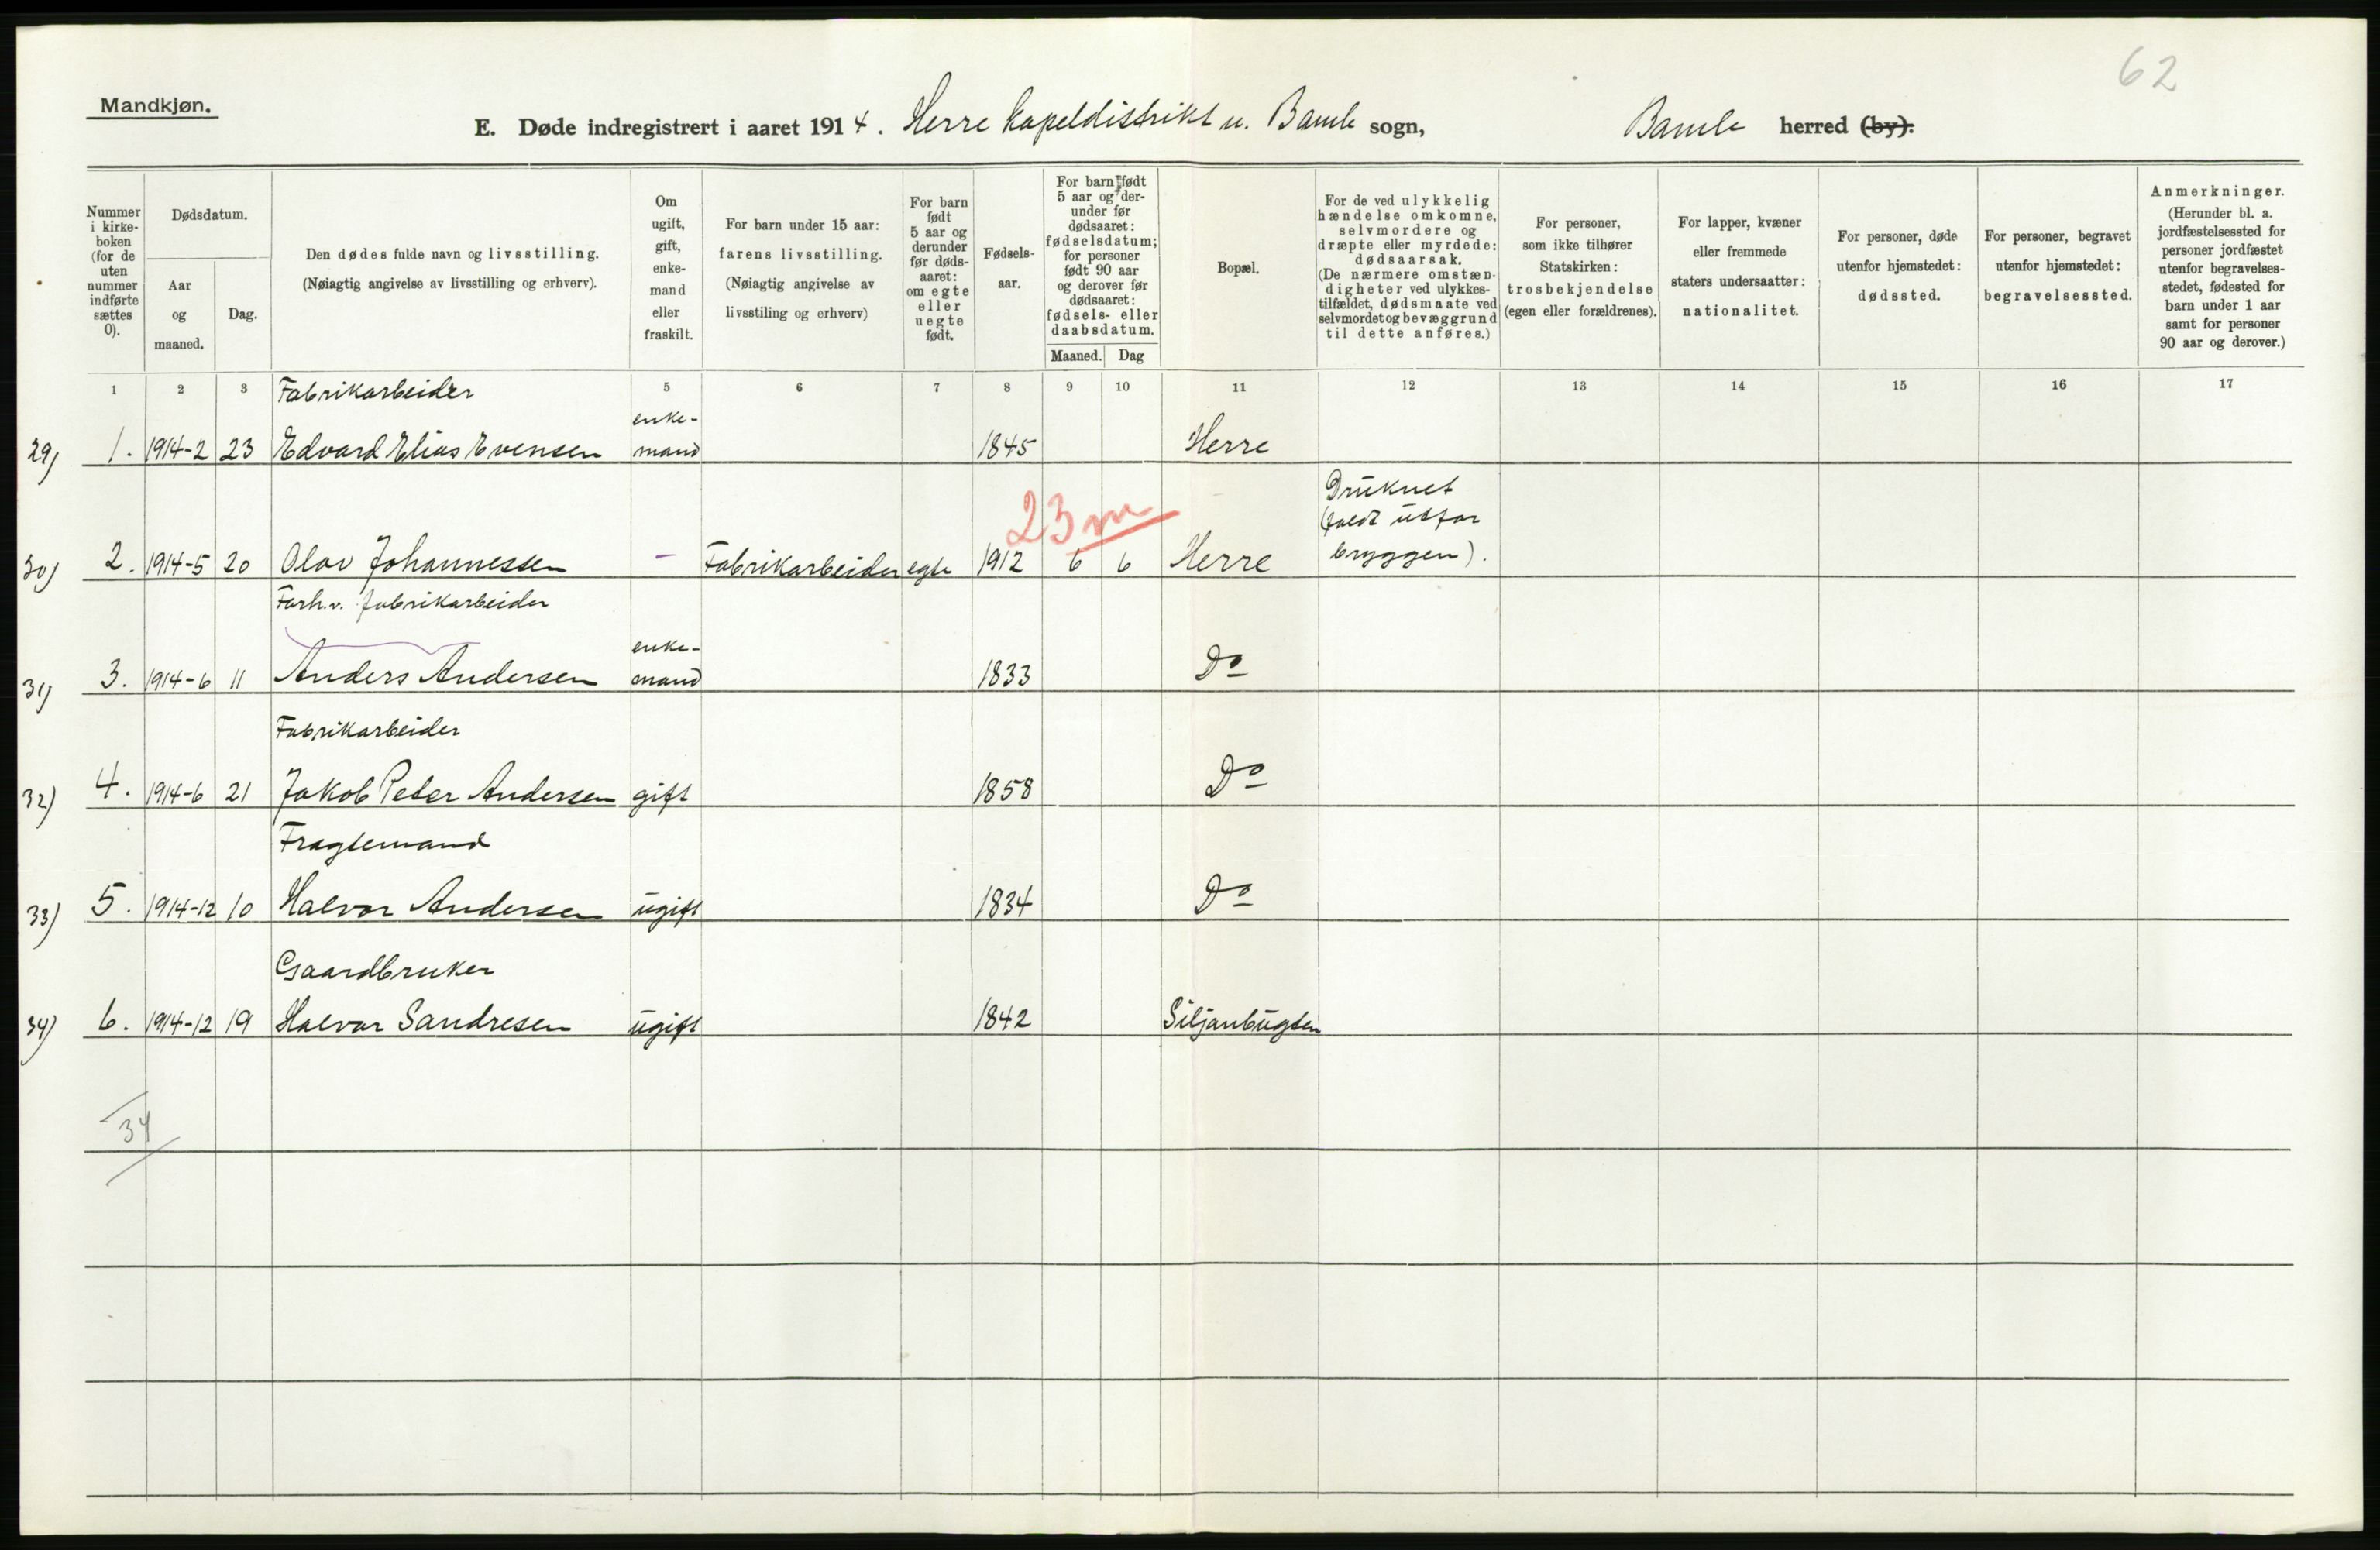 62
Mandkjøn.
E. Døde indregistrert i aaret 1914. Herre kapeldistrikt u. Bamle sogn, Bamle herred (by).
Nummer i kirkeboken (for de uten nummer indførte sættes 0).
Dødsdatum.
Aar og maaned.
Dag.
Den dødes fulde navn og livsstilling.
(Nøiagtig angivelse av livsstilling og erhverv).
Om ugift, gift, enkemand eller fraskilt.
For barn under 15 aar: farens livsstilling.
(Nøiagtig angivelse av livsstiling og erhverv)
For barn født 5 aar og derunder før dødsaaret: om egte eller uegte født.
Fødselsaar.
For barn født 5 aar og derunder før dødsaaret: fødselsdatum; for personer født 90 aar og derover før dødsaaret: fødsels- eller daabsdatum.
Maaned. Dag
Bopæl.
For de ved ulykkelig hændelse omkomne, selvmordere og dræpte eller myrdede: dødsaarsak.
(De nærmere omstændigheter ved ulykkestilfældet, dødsmaate ved selvmordet og bevæggrund til dette anføres.)
For personer, som ikke tilhører Statskirken: trosbekjendelse (egen eller forældrenes).
For lapper, kvæner eller fremmede staters undersaatter: nationalitet.
For personer, døde utenfor hjemstedet: dødssted.
For personer, begravet utenfor hjemstedet: begravelsessted.
Anmerkninger.
(Herunder bl. a. jordfæstelsessted for personer jordfæstet utenfor begravelsesstedet, fødested for barn under 1 aar samt for personer 90 aar og derover.)
1 2 3 5 6 7 8 9 10 11 12 13 14 15 16 17
Fabrikarbeider
enke-
29) 1. 1914-2 23 Edvard Elias Evensen mand 1845 Herre
Druknet
23 m (faldt utfor
30) 2. 1914-5 20 Olav Johannessen - Fabrikarbeider egte 1912 6 6 Herre bryggen).
Forh.v. fabrikarbeider
enke-
31) 3. 1914-6 11 Anders Andersen mand 1833 Do
Fabrikarbeider
32) 4. 1914-6 21 Jakob Peter Andersen gift 1858 Do
Fragtemand
33) 5. 1914-12 10 Halvor Andersen ugift 1834 Do
Gaardbruker
34) 6. 1914-12 19 Halvor Sandresen ugift 1842 Siljanbugten
34